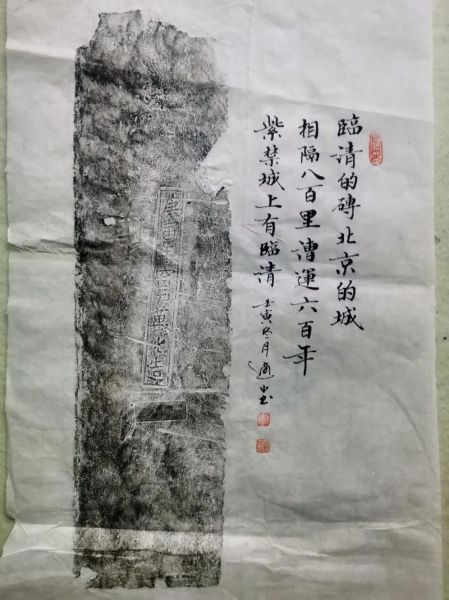 臨清的磚北京的城
相隔八百里漕運六百年
紫禁城上有臨清
壬寅冬月